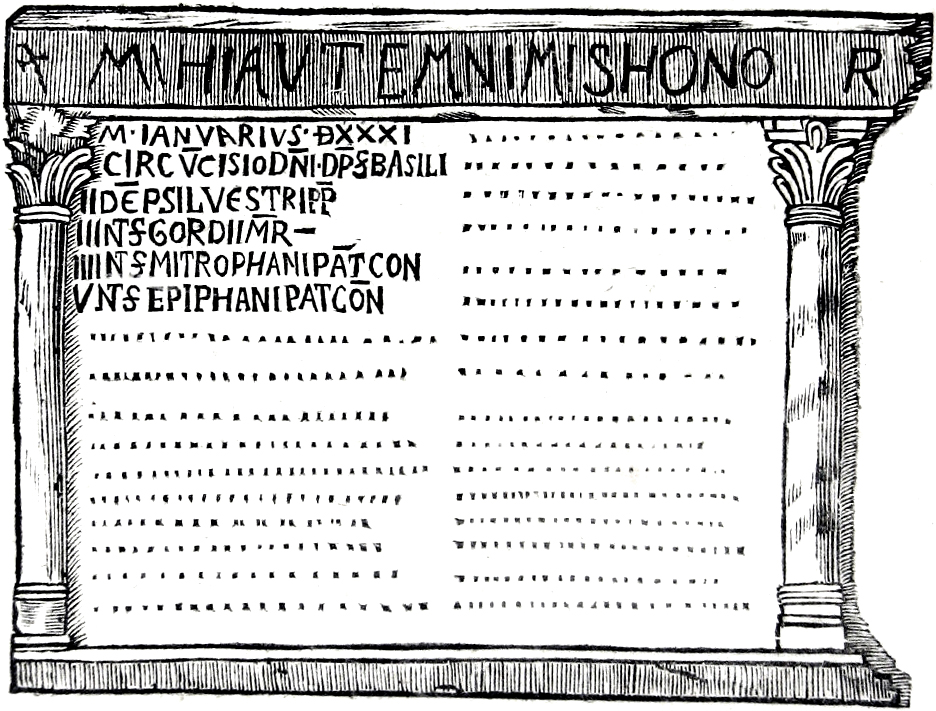 A MIHI AUTEM NIMIS HONO R
M·IANVARIVS·ÐXXXI
CIRCVCISIO DN̄I·DP̄ S BASILI
II DEP SILVESTRI PP̄
III NT̄ S GORDII M̄R–
IIII NT̄ S MITROPHANI PĀT CON
V NT̄ S EPIPHANI PAT CŌN